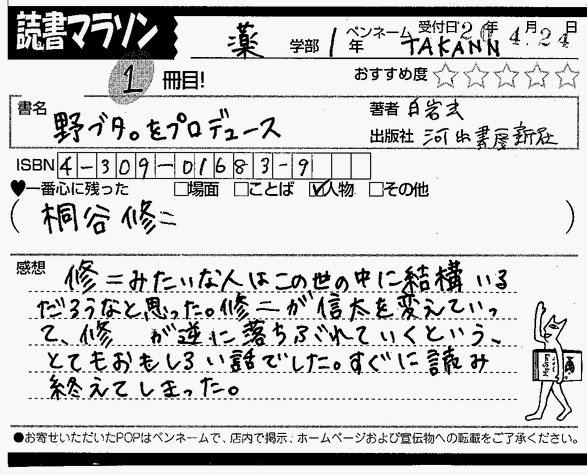 読書マラソン
薬 学部 1年 ペンネーム TAKANN 受付日 年4月24日
1冊目! おすすめ度 ☆☆☆☆☆
書名 野ブタ。をプロデュース
著者 白岩玄
出版社 河出書房新社
ISBN 4-309-01683-9
♥一番心に残った □場面 □ことば ☑人物 □その他
(桐谷修二)
感想
修二みたいな人はこの世の中に結構いる
だろうなと思った。修二が信太を変えていっ
て、修 が逆に落ちぶれていくという、
とてもおもしろい話でした。すぐに読み
終えてしまった。
●お寄せいただいたPOPはペンネームで、店内で掲示、ホームページおよび宣伝物への転載をご了承ください。